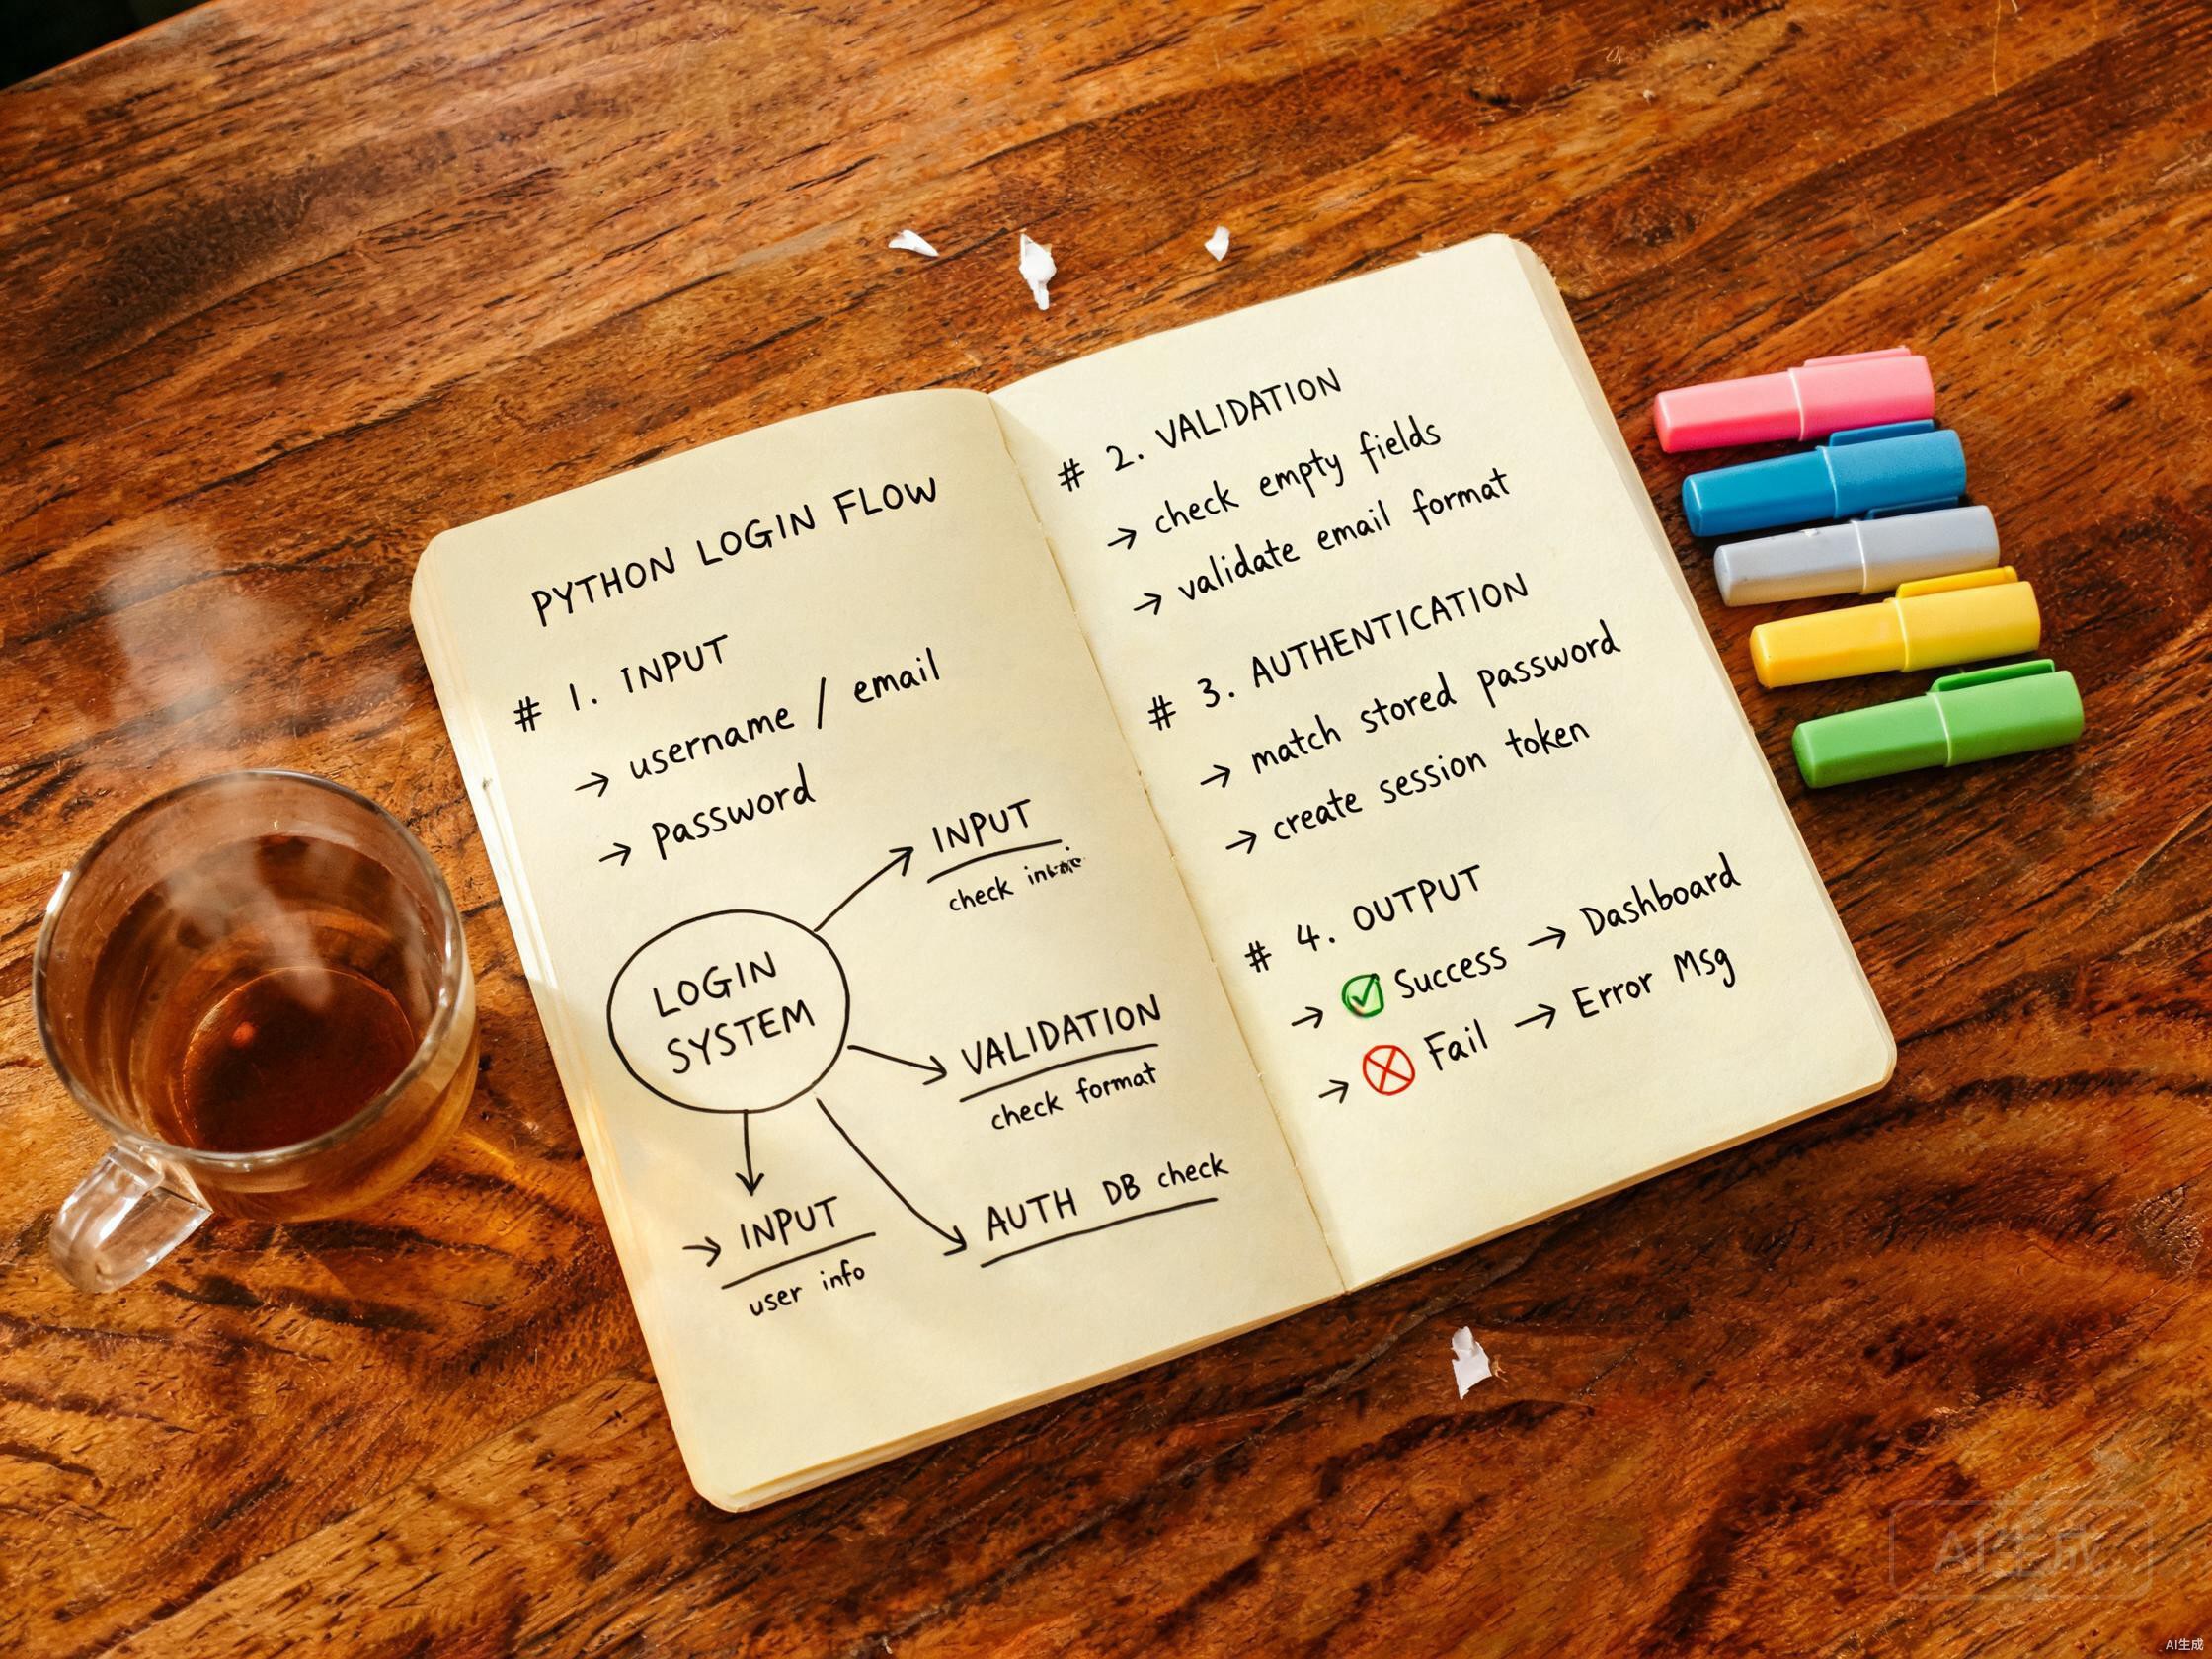 PYTHON LOGIN FLOW
# 1. INPUT
→ username / email
→ password
LOGIN
SYSTEM
INPUT
check
VALIDATION
check format
AUTH DB check
→ INPUT
user info
# 2. VALIDATION
→ check empty fields
→ validate email format
# 3. AUTHENTICATION
→ match stored password
→ create session token
# 4. OUTPUT
→ ✅ Success → Dashboard
→ ❌ Fail → Error Msg
AI生成
AI生成